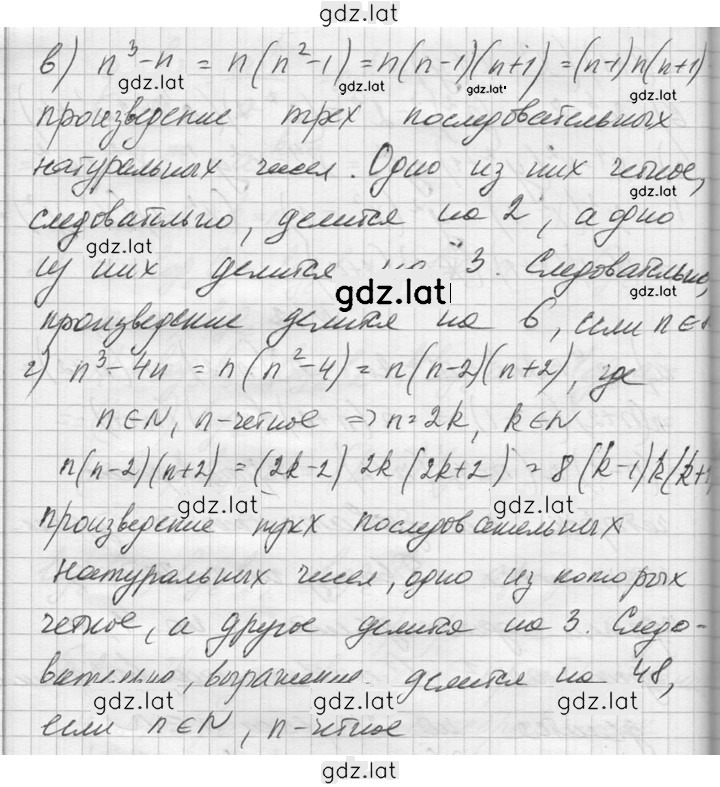 gdz.lat
в) n³-n = n(n²-1) = n(n-1)(n+1) = (n-1)n(n+1)
gdz.lat gdz.lat gdz.lat
gdz.lat
произведение трех последовательных
натуральных чисел. Одно из них четное,
gdz.lat
следовательно, делится на 2, а одно
gdz.lat
из них делится на 3. Следовательно,
gdz.lat
произведение делится на 6, если n∈
г) n³-4n = n(n²-4) = n(n-2)(n+2), где
n∈N, n-четное => n=2k, k∈N
n(n-2)(n+2) = (2k-2) 2k (2k+2) = 8(k-1)k(k+
gdz.lat gdz.lat gdz.lat
произведение трех последовательных
натуральных чисел, одно из которых
четное, а другое делится на 3. Следо-
вательно, выражение делится на 48,
gdz.lat gdz.lat gdz.lat
если n∈N, n-четное
gdz.lat